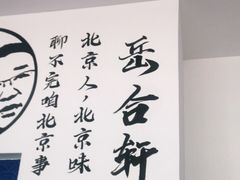 岳台轩
北京人，北京味
聊不完咱北京事